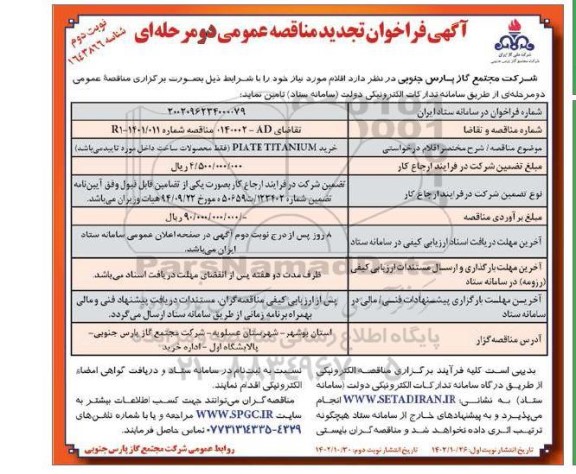 آگهی فراخوان تجدید مناقصه عمومی دو مرحله‌ای
نوبت دوم
شناسه ۱۶۴۳۸۶۶
شرکت ملی گاز ایران
شرکت مجتمع گاز پارس جنوبی
شرکت مجتمع گاز پارس جنوبی در نظر دارد اقلام مورد نیاز خود را با شرایط ذیل بصورت برگزاری مناقصه عمومی
دومرحله‌ای از طریق سامانه تدارکات الکترونیکی دولت (سامانه ستاد) تامین نماید.
شماره فراخوان در سامانه ستاد ایران ۲۰۰۲۰۹۶۲۳۴۰۰۰۰۷۹
شماره مناقصه و تقاضا تقاضای AD – ۰۱۴۰۰۰۲ مناقصه شماره R1–۱۴۰۱/۰۱۱
موضوع مناقصه / شرح مختصر اقلام درخواستی خرید PIATE TITANIUM (فقط محصولات ساخت داخل مورد تایید می‌باشد)
مبلغ تضمین شرکت در فرایند ارجاع کار ۴/۵۰۰/۰۰۰/۰۰۰ ریال
نوع تضمین شرکت در فرایند ارجاع کار تضمین شرکت در فرایند ارجاع کار بصورت یکی از تضامین قابل قبول وفق آیین‌نامه
تضمین شماره ۱۲۳۴۰۲/ت۵۰۶۵۹ه مورخ ۹۴/۰۹/۲۲ هیات وزیران می‌باشد.
مبلغ برآوردی مناقصه ۹۰/۰۰۰/۰۰۰/۰۰۰/– ریال
آخرین مهلت دریافت اسناد ارزیابی کیفی در سامانه ستاد ۸ روز پس از درج نوبت دوم آگهی در صفحه اعلان عمومی سامانه ستاد
ایران می‌باشد.
آخرین مهلت بارگذاری و ارسال مستندات ارزیابی کیفی
(رزومه) در سامانه ستاد ظرف مدت دو هفته پس از انقضای مهلت دریافت اسناد می‌باشد
آخرین مهلت بارگزاری پیشنهادات فنی/ مالی در
سامانه ستاد پس از ارزیابی کیفی مناقصه‌گران، مستندات دریافت پیشنهاد فنی و مالی
بهمراه برنامه زمانی از طریق سامانه ستاد ارسال می‌گردد.
آدرس مناقصه‌گزار استان بوشهر – شهرستان عسلویه – شرکت مجتمع گاز پارس جنوبی –
پالایشگاه اول – اداره خرید
بدیهی است کلیه فرآیند برگزاری مناقصه الکترونیکی
از طریق درگاه سامانه تدارکات الکترونیکی دولت (سامانه
ستاد) به نشانی: WWW.SETADIRAN.IR انجام
می‌پذیرد و به پیشنهادهای خارج از سامانه ستاد هیچگونه
ترتیب اثری داده نخواهد شد و مناقصه‌گران بایستی
نسبت به ثبت‌نام در سامانه ستاد و دریافت گواهی امضاء
الکترونیکی اقدام نمایند.
مناقصه‌گران می‌توانند جهت کسب اطلاعات بیشتر به
سایت WWW.SPGC.IR مراجعه و یا با شماره تلفن‌های
۰۷۷۳۱۳۱۴۳۳۵-۴۳۲۹ تماس حاصل فرمایند.
تاریخ انتشار نوبت اول: ۱۴۰۲/۱۰/۲۶ تاریخ انتشار نوبت دوم: ۱۴۰۲/۱۰/۳۰
روابط عمومی شرکت مجتمع گاز پارس جنوبی